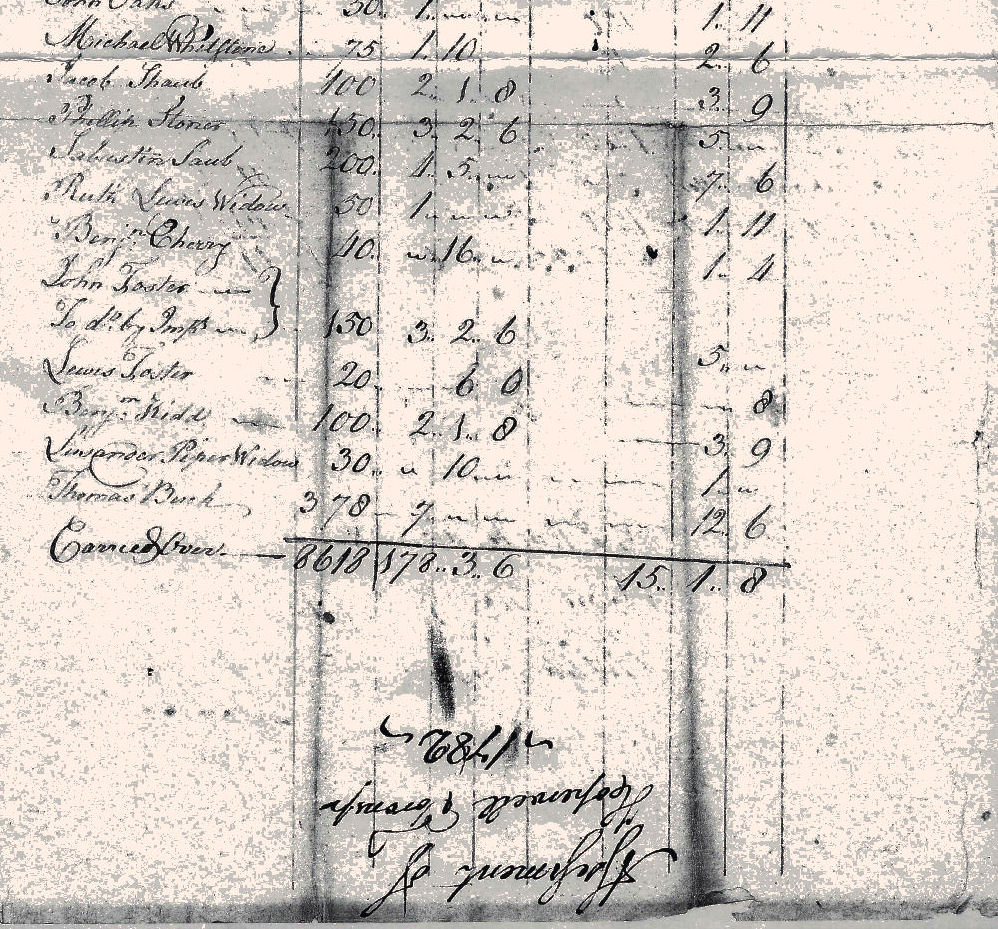 John Oaks 50. 1. 1. 11
Michael Whitstone 75 1. 10. 2. 6
Jacob Shaub 100 2. 1. 8 3. 9
Phillip Stoner 150. 3. 2. 6 5.
Saub 200. 4. 5. 7. 6
Ruth Lewis Widow 50 1. 1. 11
Benjn. Cherry 40. 16. 1. 4
John Foster
To do. by Impt. 150 3. 2. 6 5.
Lewis Foster 20 6 0 8
Benjm. Kidd 100. 2. 1. 8 3. 9
Piper Widow 30. 10. 1.
Thomas Buck 378 7 12. 6
Carried Over 8618 178. 3. 6 15. 1. 8
Assesment of
Hopewell Township
1782